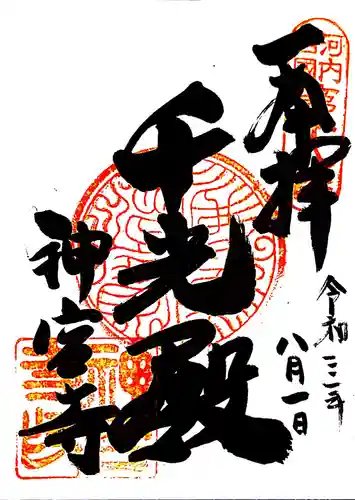 奉拝
河内西国
令和三年
八月一日
千光殿
神宮寺